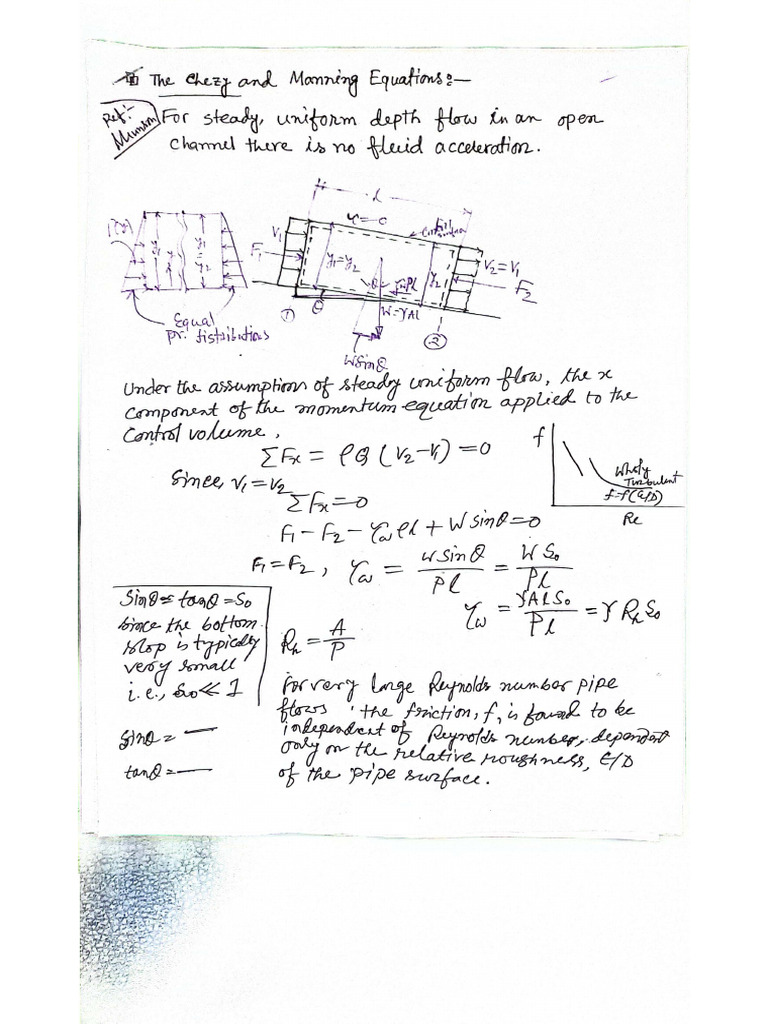 The Chezy and Manning Equations:—
Ref:- Munson
For steady, uniform depth flow in an open
channel there is no fluid acceleration.
l
τ = 0
Control surface
V₁
F₁
y₁
y₁ = y₂
y₁=y₂
y₂
θ
τw Pl
W=γAl
V₂=V₁
F₂
①
θ
②
Equal
pr. distributions
W sinθ
Under the assumptions of steady uniform flow, the x
component of the momentum equation applied to the
Control volume,
ΣFx = ρQ (V₂−V₁) = 0
Since, V₁=V₂
ΣFx=0
F₁ − F₂ − τw Pl + W sinθ=0
F₁=F₂, τw = W sinθ / Pl = W S₀ / Pl
τw = γAlS₀ / Pl = γ Rh S₀
f
Wholly
Turbulent
f=f(ε/D)
Re
Sinθ ≈ tanθ = S₀
Since the bottom
slop is typically
very small
i.e., S₀ ≪ 1
Rh = A / P
sinθ = —
tanθ = —
For very large Reynolds number pipe
flows, the friction, f, is found to be
independent of Reynolds number, dependent
only on the relative roughness, ε/D
of the pipe surface.